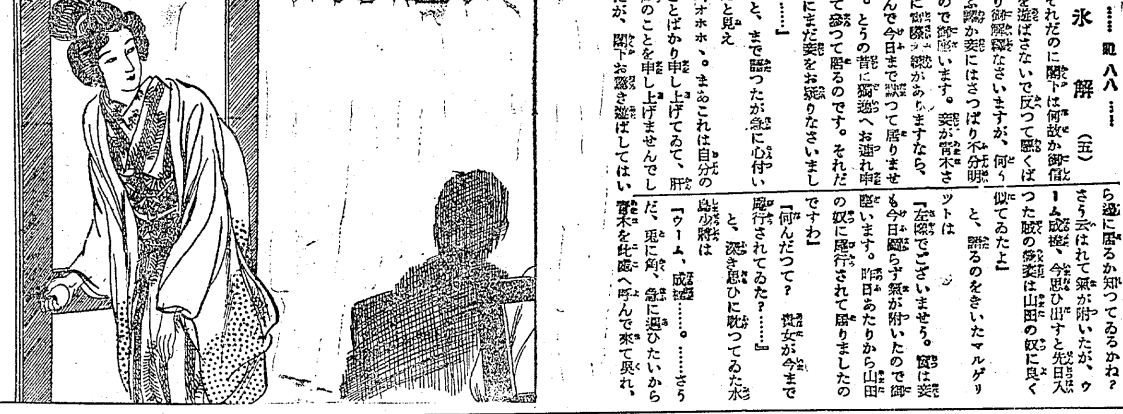 …… 八八 ……
氷解（五）
それだのに閣下は何故か御信
を遊ばさないで反つて悪くば
り御解釋なさいますが、何う
か妾にはさつぱり不分明
ので御座います。妾が青木さ
に關縁がありますなら、
んで今日まで默つて居りませ
。とうの昔に獨逸へお連れ申
て參つて居るのです。それだ
にまだ妾をお疑りなさいまし
……』
と、まで語つたが急に心付い
と見え
オホホ、。まあこれは自分の
とばかり申し上げてゐて、肝
のことを申し上げませんでし
が、閣下お驚き遊ばしてはい
ら邊に居るか知つてゐるかね？
さう云はれて氣が附いたが、ウ
ーム成程、今思ひ出すと先日入
つた賊の後姿は山田の奴に良く
似てゐたよ』
と、語るのをきいたマルゲリ
ツトは
『左樣でございませう。實は妾
も今日圖らず氣が附いたので御
座います。昨日あたりから山田
の奴に尾行されて居りましたの
ですわ』
『何んだつて？ 貴女が今まで
尾行されてゐた？……』
と、深き思ひに耽つてゐた水
島少將は
『ウーム、成程……。……さう
だ、兎に角、急に遇ひたいから
青木を此處へ呼んで來て呉れ。